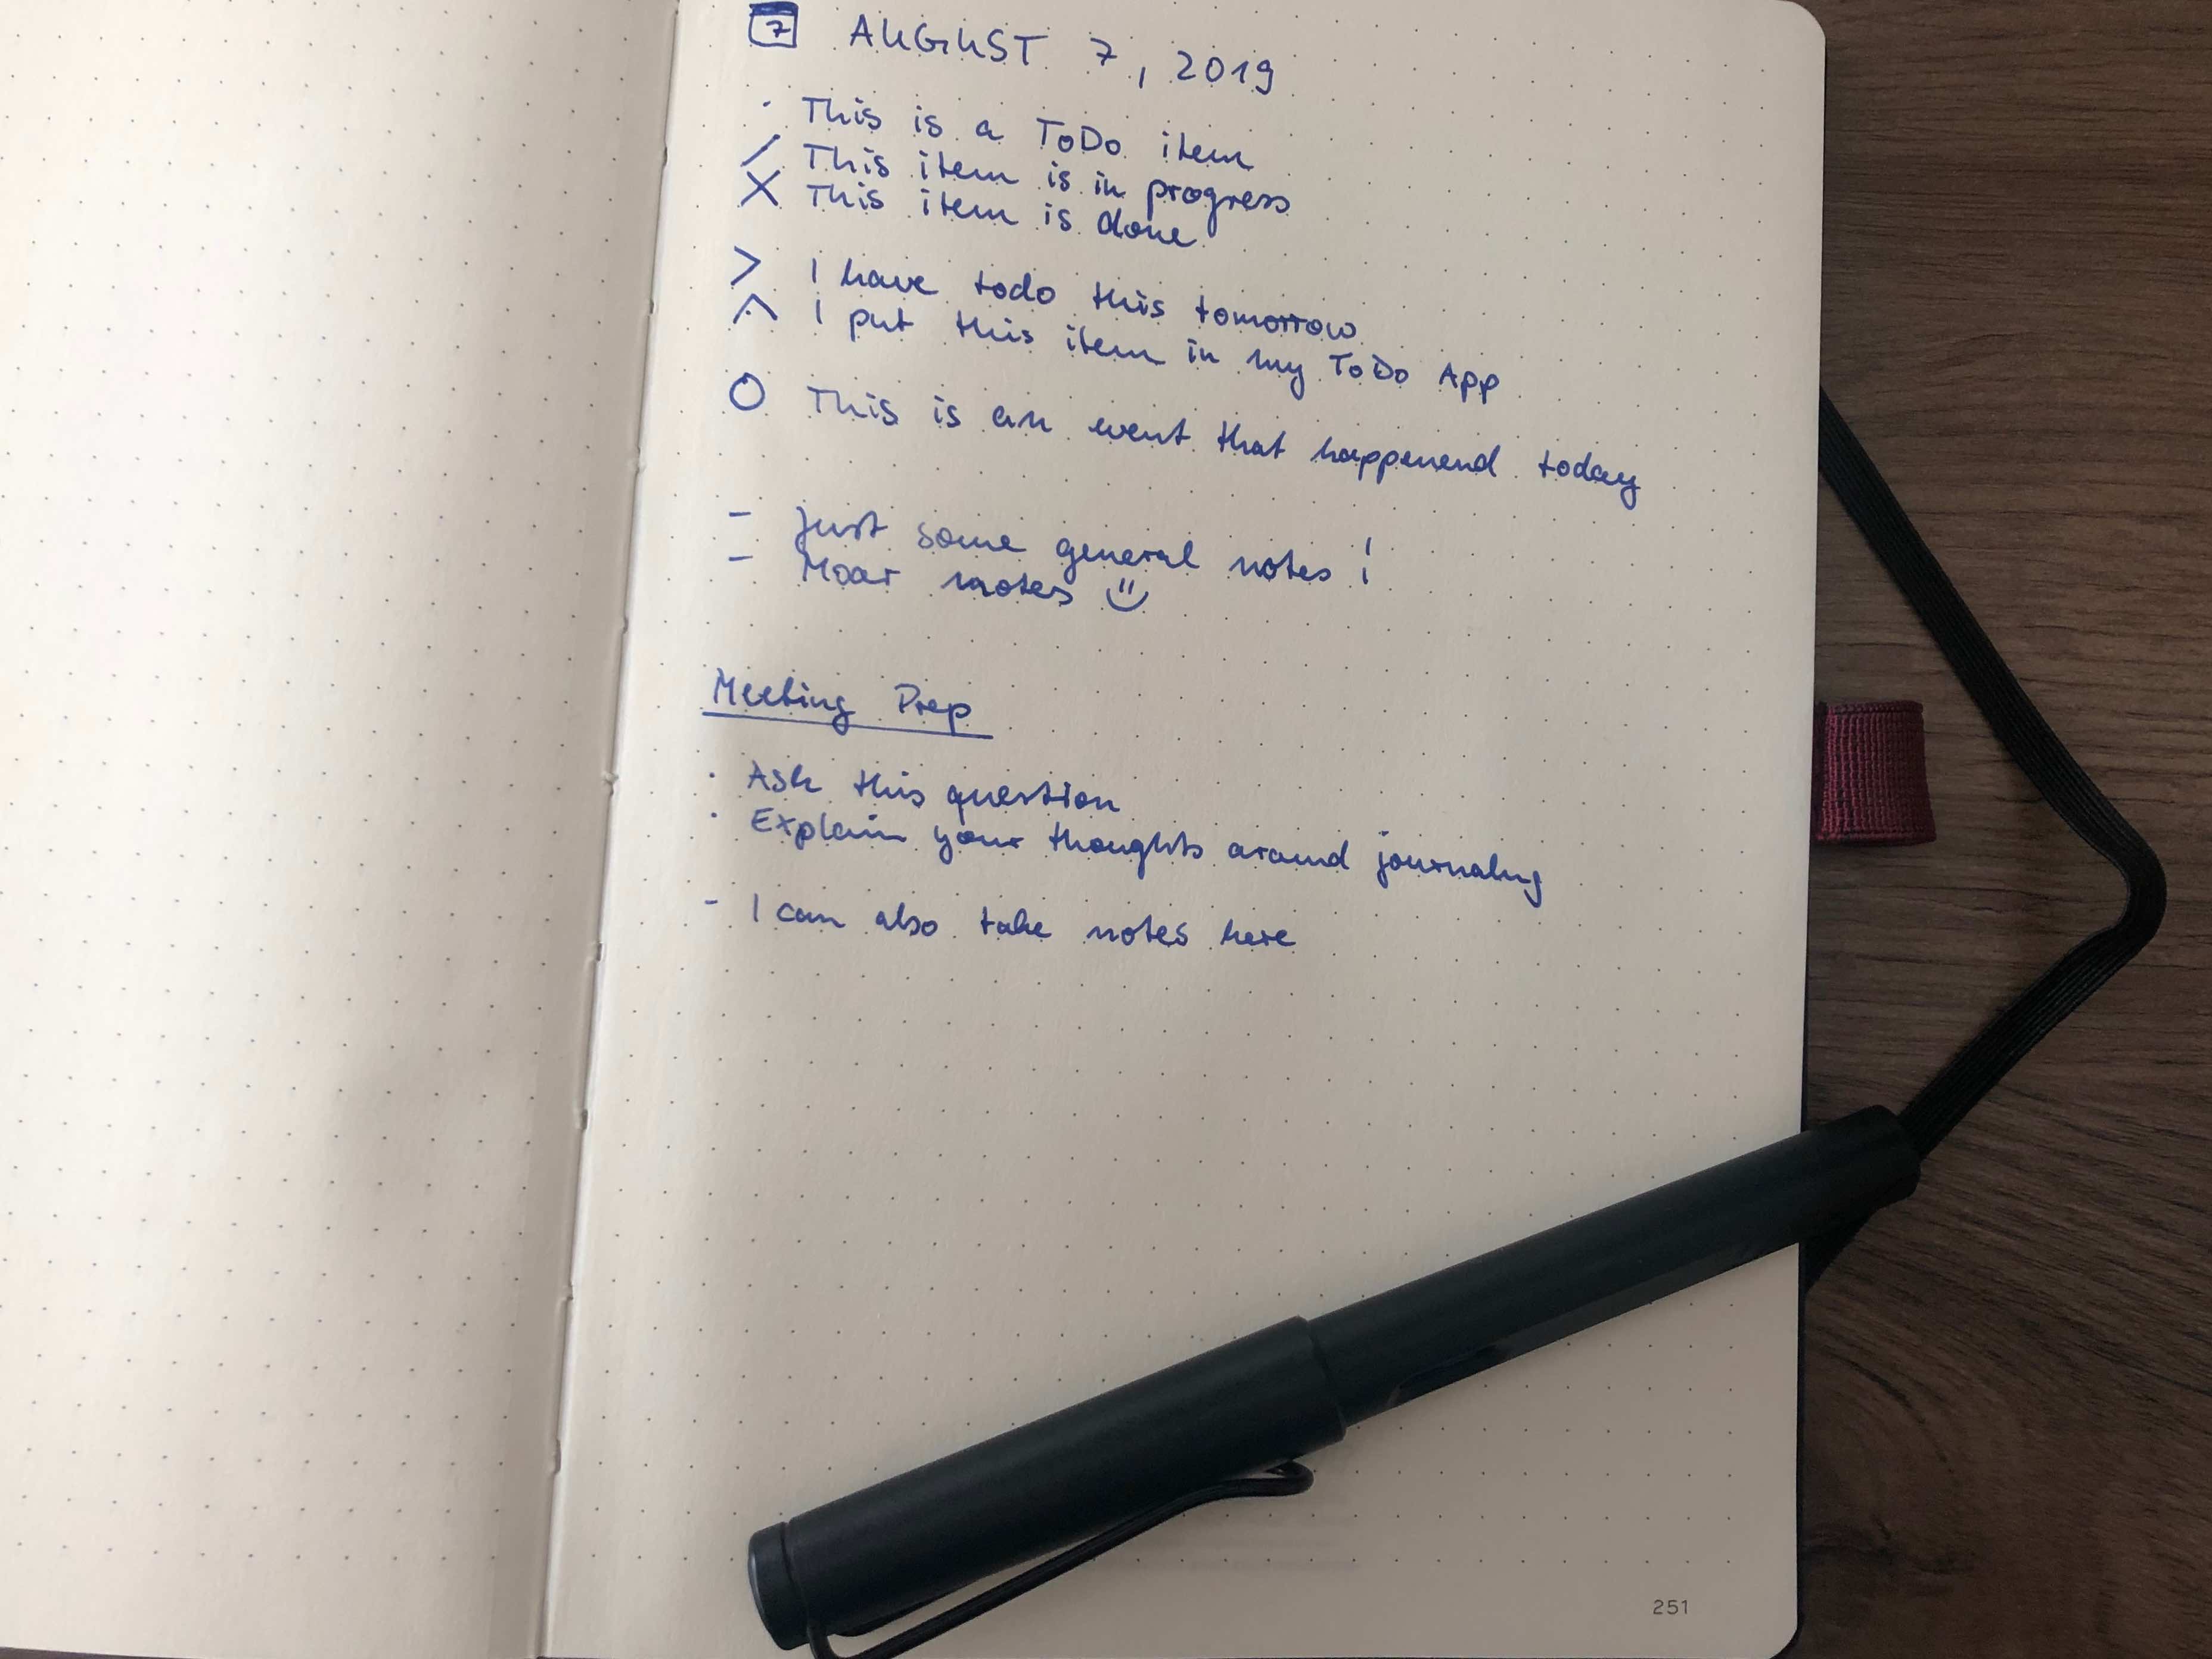 7 AUGUST 7, 2019
· This is a ToDo item
/ This item is in progress
X This item is done
> I have todo this tomorrow
^ I put this item in my ToDo App
O This is an event that happenend today
- Just some general notes!
- Moar notes
Meeting Prep
· Ask this question
· Explain your thoughts around journaling
- I can also take notes here
251